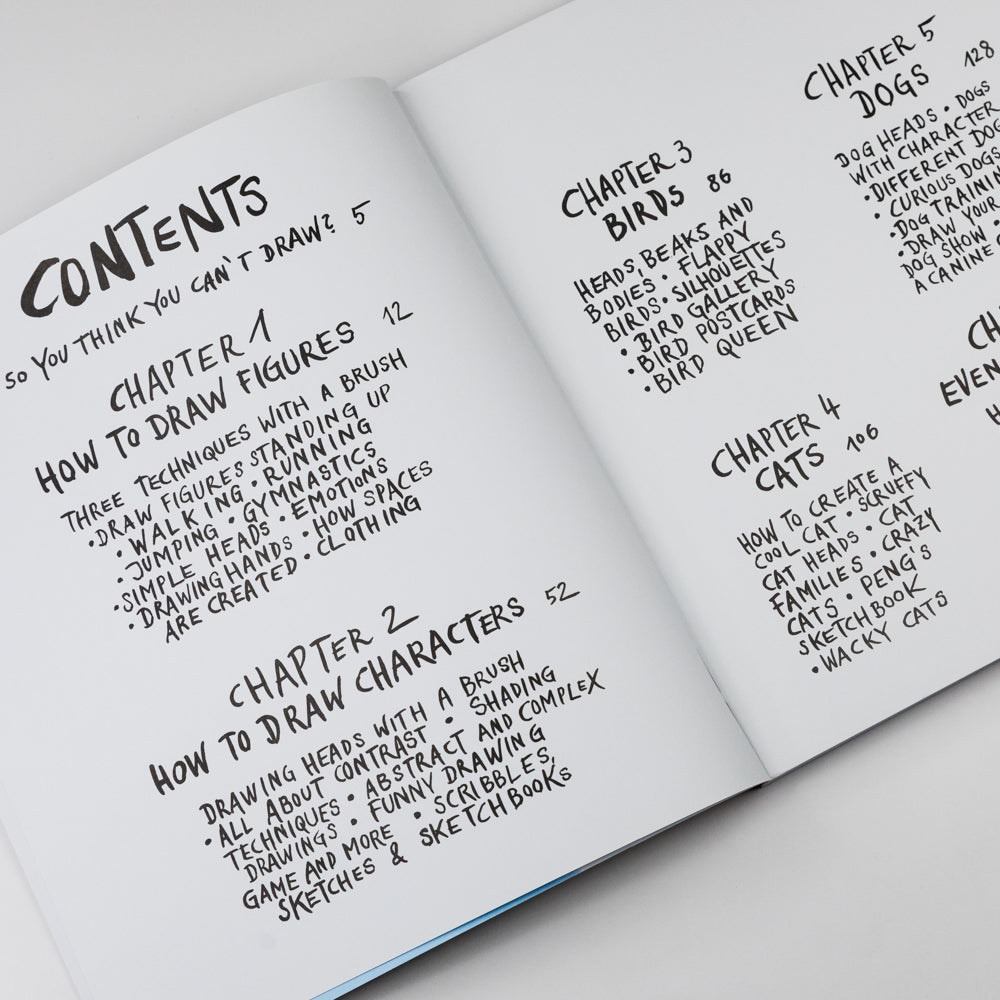 CONTENTS
SO YOU THINK YOU CAN'T DRAW? 5
CHAPTER 1
HOW TO DRAW FIGURES 12
THREE TECHNIQUES WITH A BRUSH
• DRAW FIGURES STANDING UP
• WALKING • RUNNING
• JUMPING • GYMNASTICS
• SIMPLE HEADS • EMOTIONS
• DRAWING HANDS • HOW SPACES
ARE CREATED • CLOTHING
CHAPTER 2
HOW TO DRAW CHARACTERS 52
DRAWING HEADS WITH A BRUSH
• ALL ABOUT CONTRAST • SHADING
TECHNIQUES • ABSTRACT AND COMPLEX
DRAWINGS • FUNNY DRAWING
GAME AND MORE • SCRIBBLES,
SKETCHES & SKETCHBOOKS
CHAPTER 3
BIRDS 86
HEADS, BEAKS AND
BODIES • FLAPPY
BIRDS • SILHOUETTES
• BIRD GALLERY
• BIRD POSTCARDS
• BIRD QUEEN
CHAPTER 4
CATS 106
HOW TO CREATE A
COOL CAT • SCRUFFY
CAT HEADS • CAT
FAMILIES • CRAZY
CATS • PENG'S
SKETCHBOOK
• WACKY CATS
CHAPTER 5
DOGS 128
DOG HEADS • DOGS
WITH CHARACTER
• DIFFERENT DOG
• CURIOUS DOGS
• DOG TRAININ
• DRAW YOUR
DOG SHOW •
A CANINE
CH
EVEN